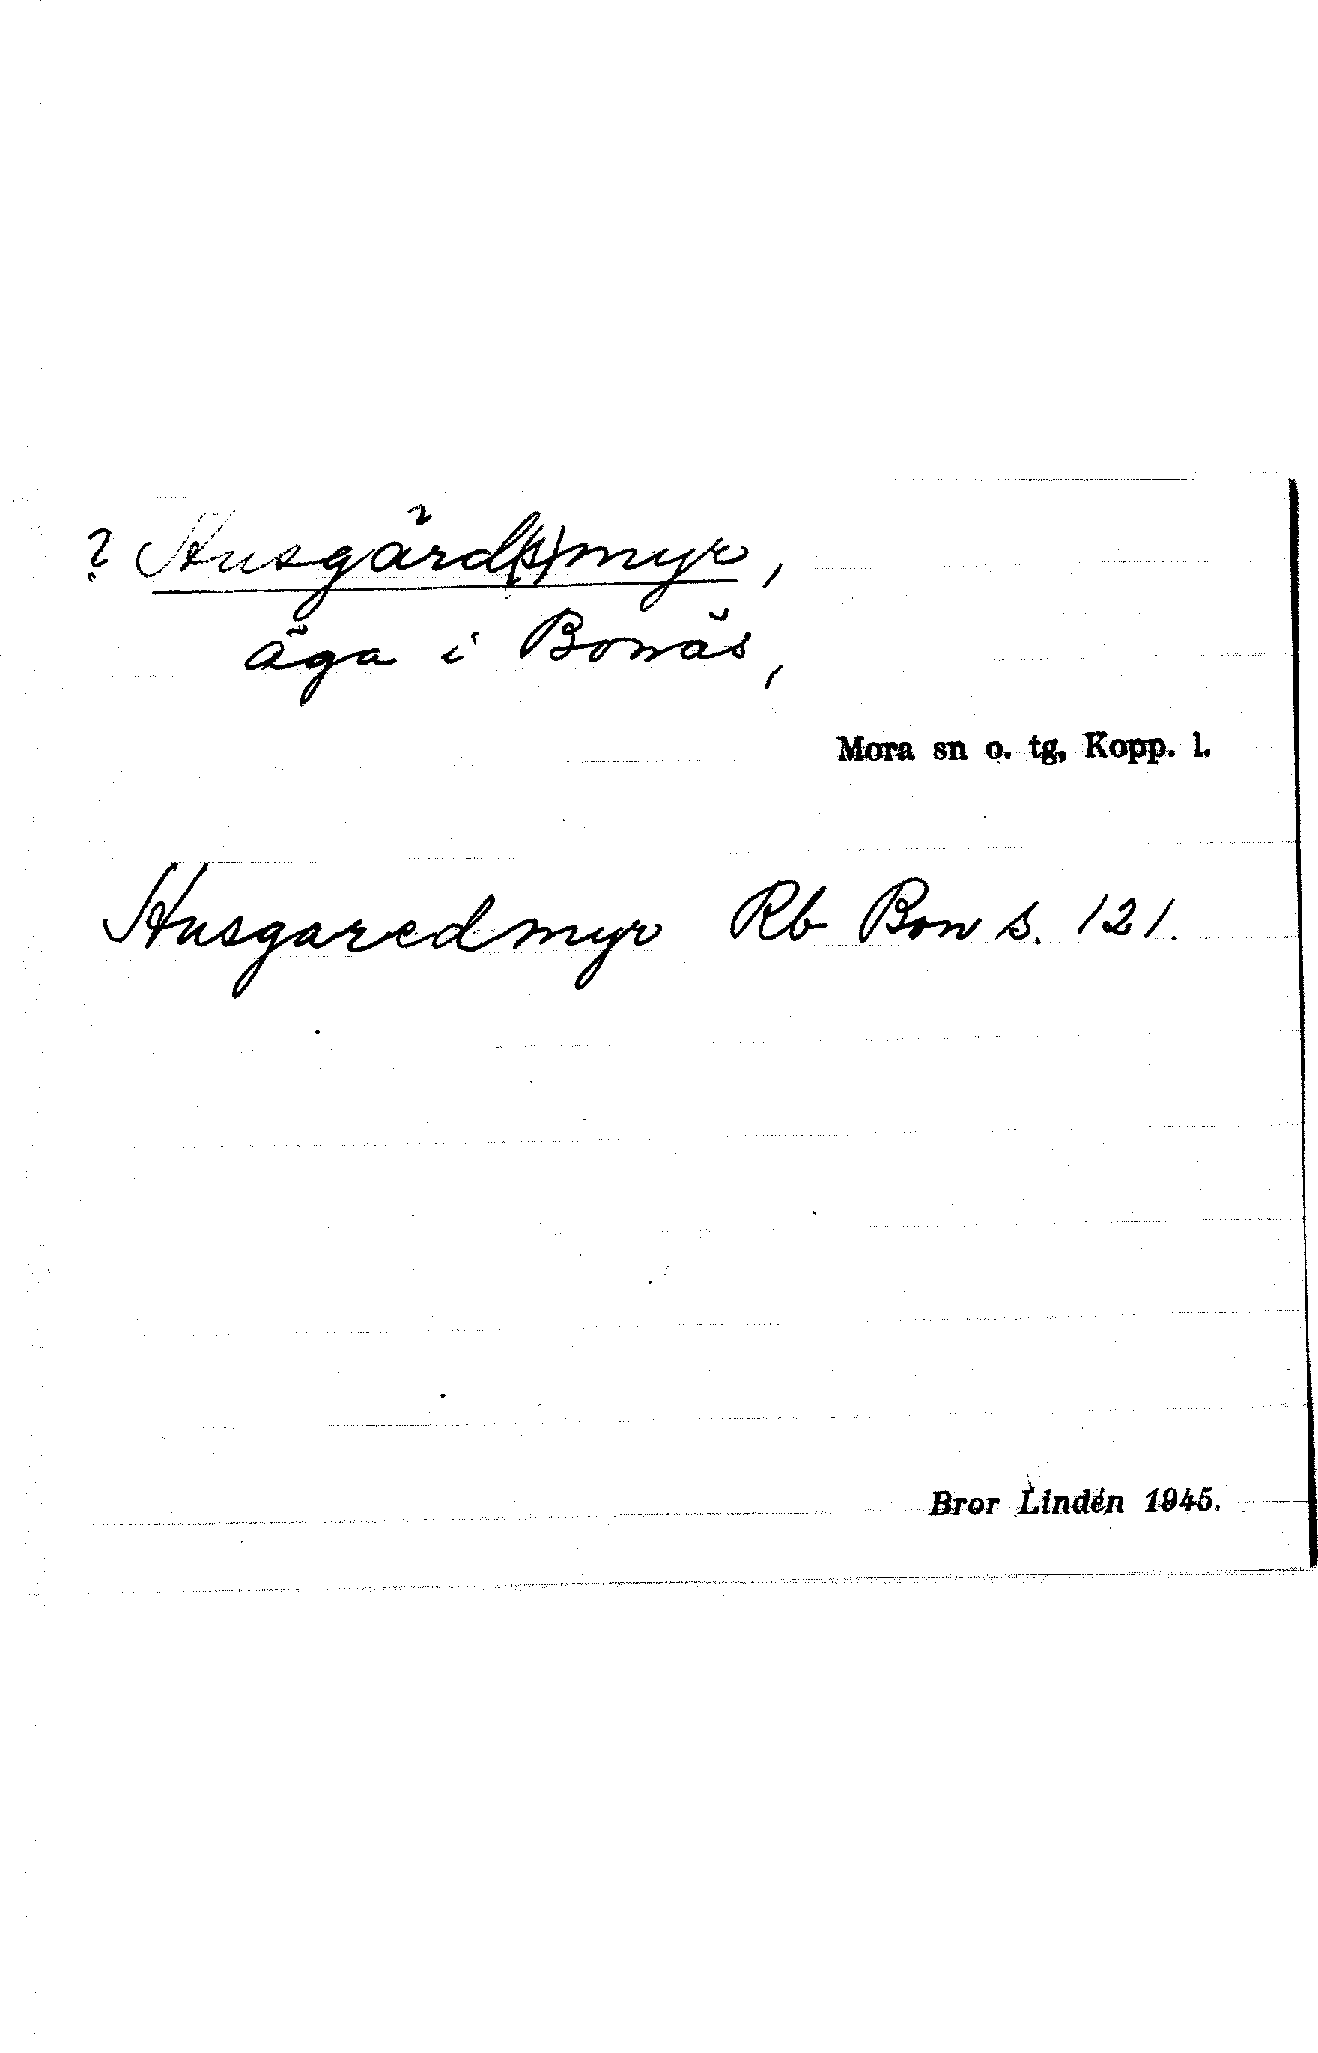 ? Husgård(s)myr,
äga i Bonäs,
Mora sn o. tg, Kopp. l.
Husgaredmyr Rb Bon s. 121.
Bror Lindén 1945.